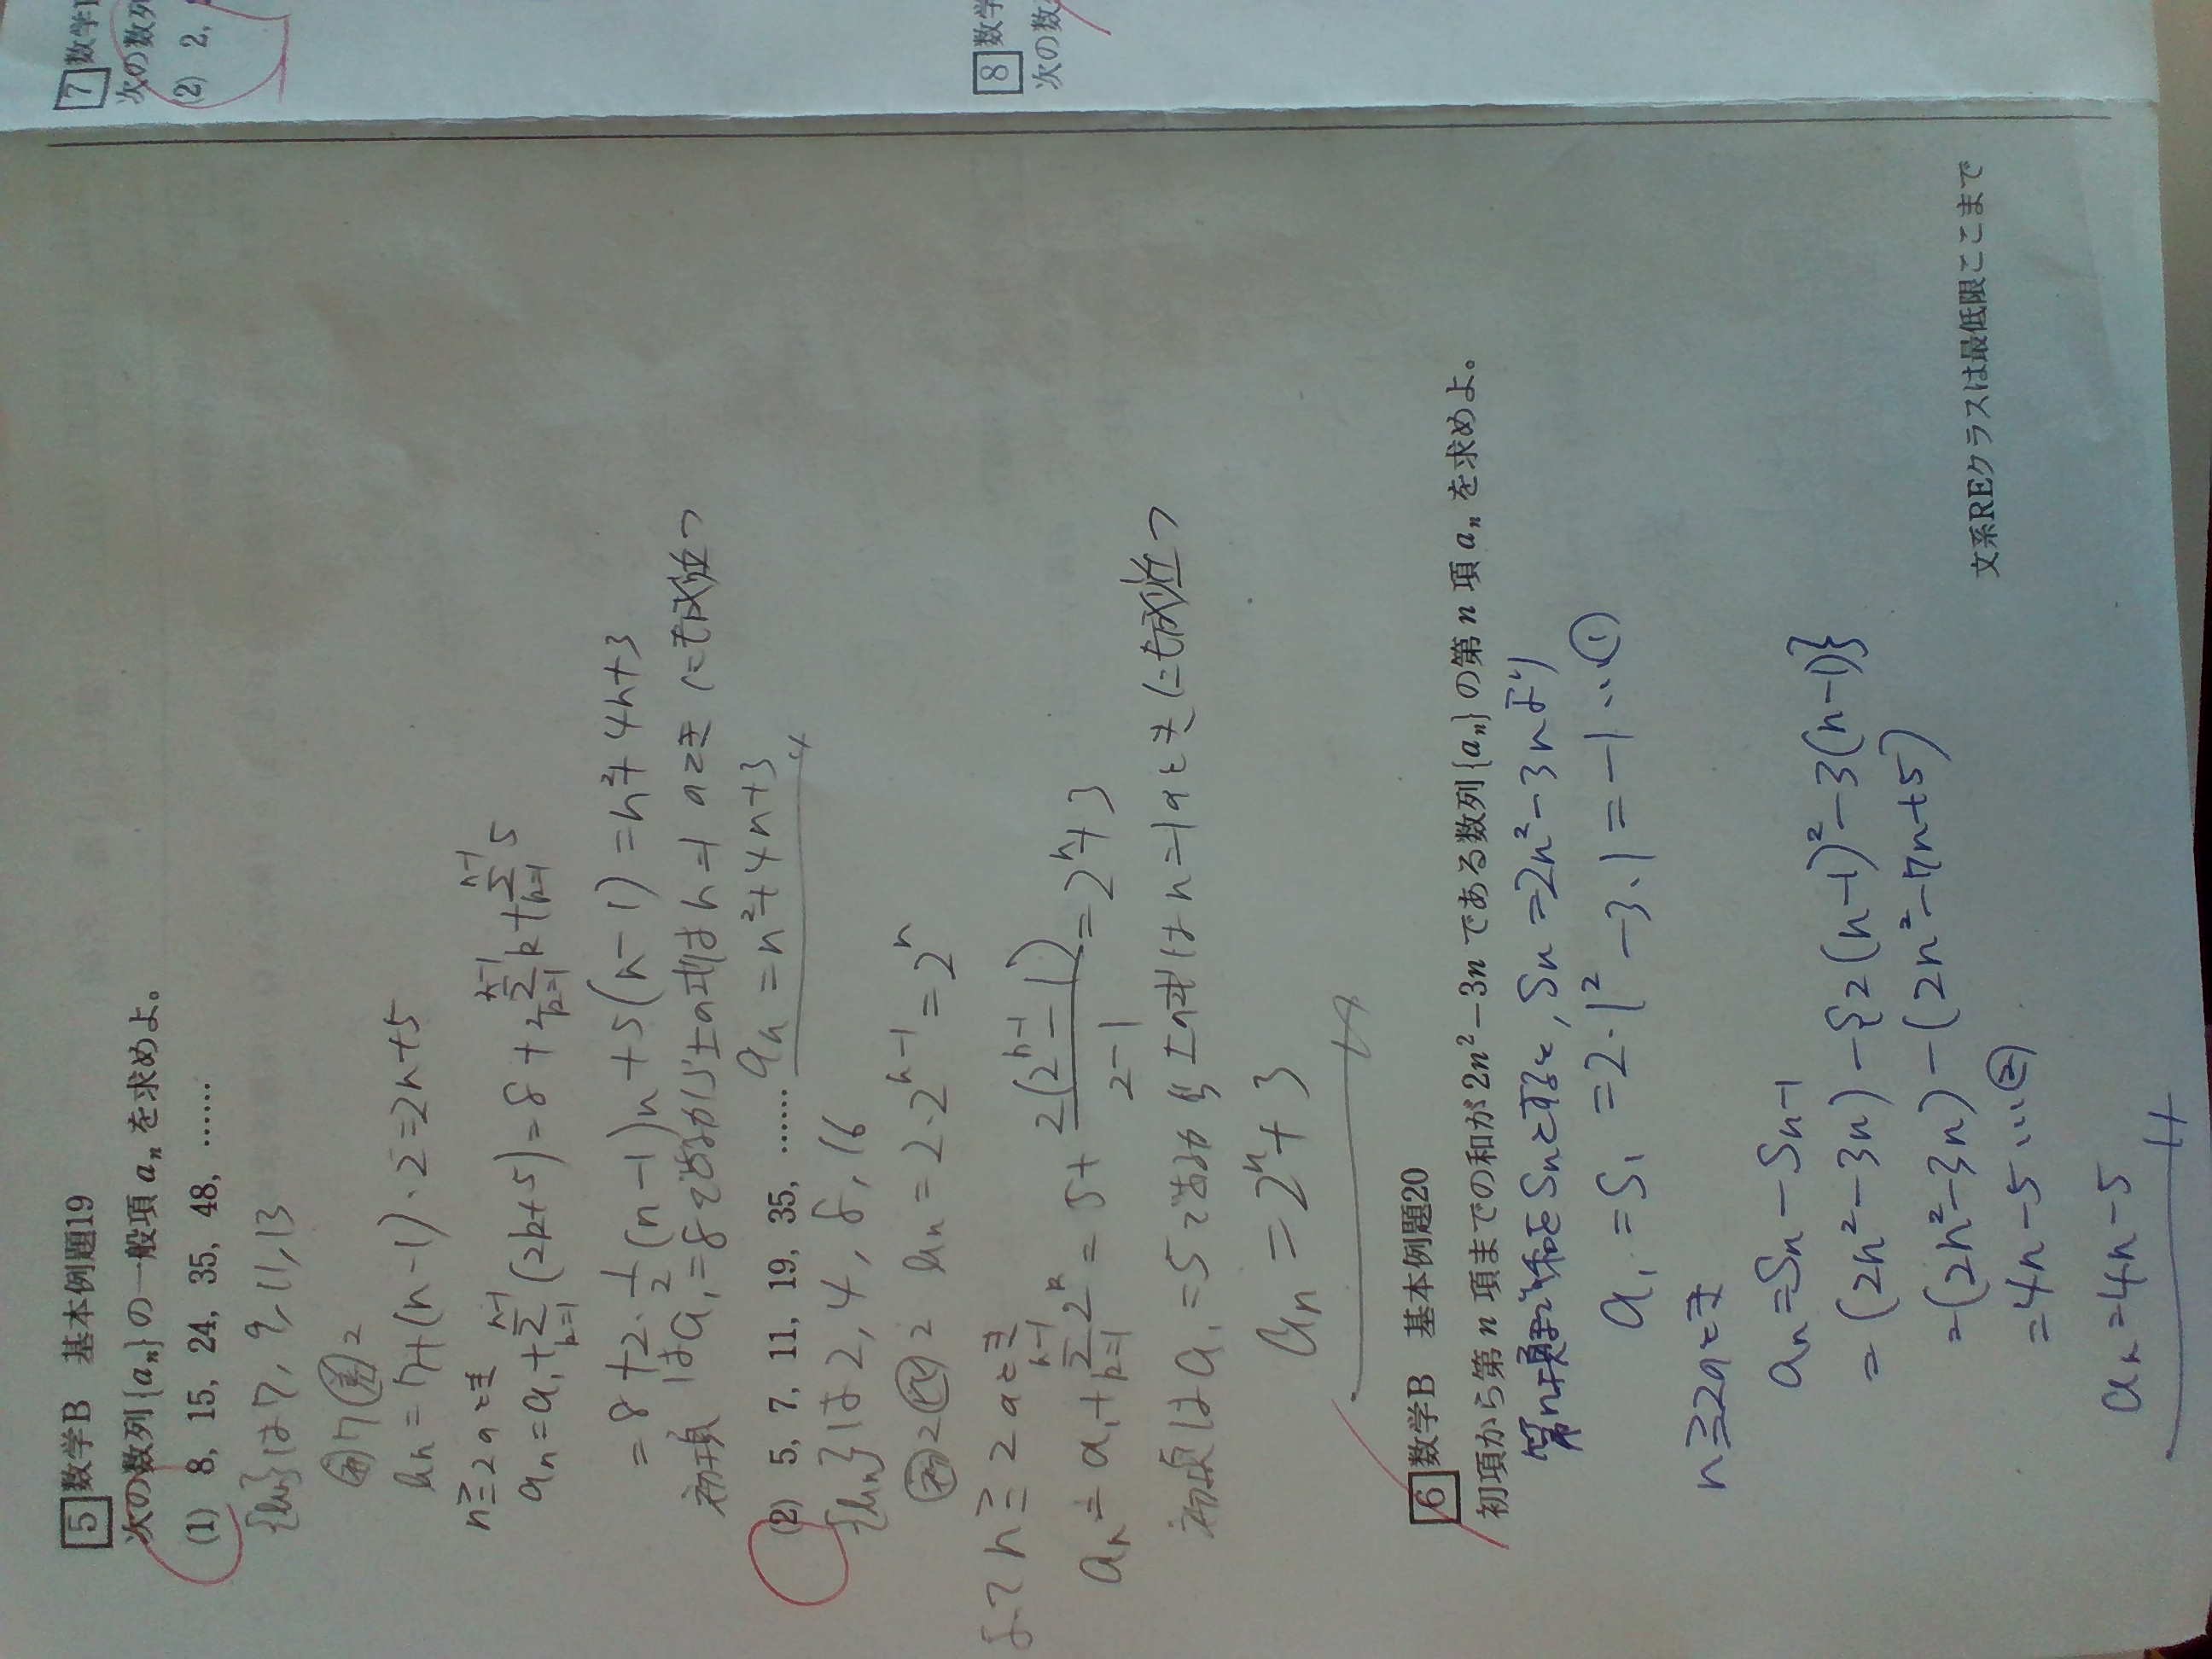 5 数学B 基本例題19
次の数列{aₙ}の一般項 aₙ を求めよ。
(1) 8, 15, 24, 35, 48, ……
{bₙ}は7, 9, 11, 13
初7 差2
bₙ=7+(n-1)·2=2n+5
n≧2のとき
aₙ=a₁+Σ[k=1, n-1](2k+5)=8+2Σ[k=1, n-1]k+Σ[k=1, n-1]5
=8+2·1/2(n-1)n+5(n-1)=n²+4n+3
初項はa₁=8であるから上の式はn=1のときにも成り立つ
aₙ=n²+4n+3
(2) 5, 7, 11, 19, 35, ……
{bₙ}は2, 4, 8, 16
初2 比2 bₙ=2·2ⁿ⁻¹=2ⁿ
よってn≧2のとき
aₙ=a₁+Σ[k=1, n-1]2ᵏ=5+2(2ⁿ⁻¹-1)/(2-1)=2ⁿ+3
初項はa₁=5であるから上の式はn=1のときにも成り立つ
aₙ=2ⁿ+3
6 数学B 基本例題20
初項から第 n 項までの和が2n²-3n である数列{aₙ}の第 n 項 aₙ を求めよ。
第n項までの和をSₙとすると, Sₙ=2n²-3nより
a₁=S₁=2·1²-3·1=-1…①
n≧2のとき
aₙ=Sₙ-Sₙ₋₁
=(2n²-3n)-{2(n-1)²-3(n-1)}
=(2n²-3n)-(2n²-7n+5)
=4n-5…②
aₙ=4n-5
文系REクラスは最低限ここまで
7 数学
次の数列
(2) 2,
8 数学
次の数